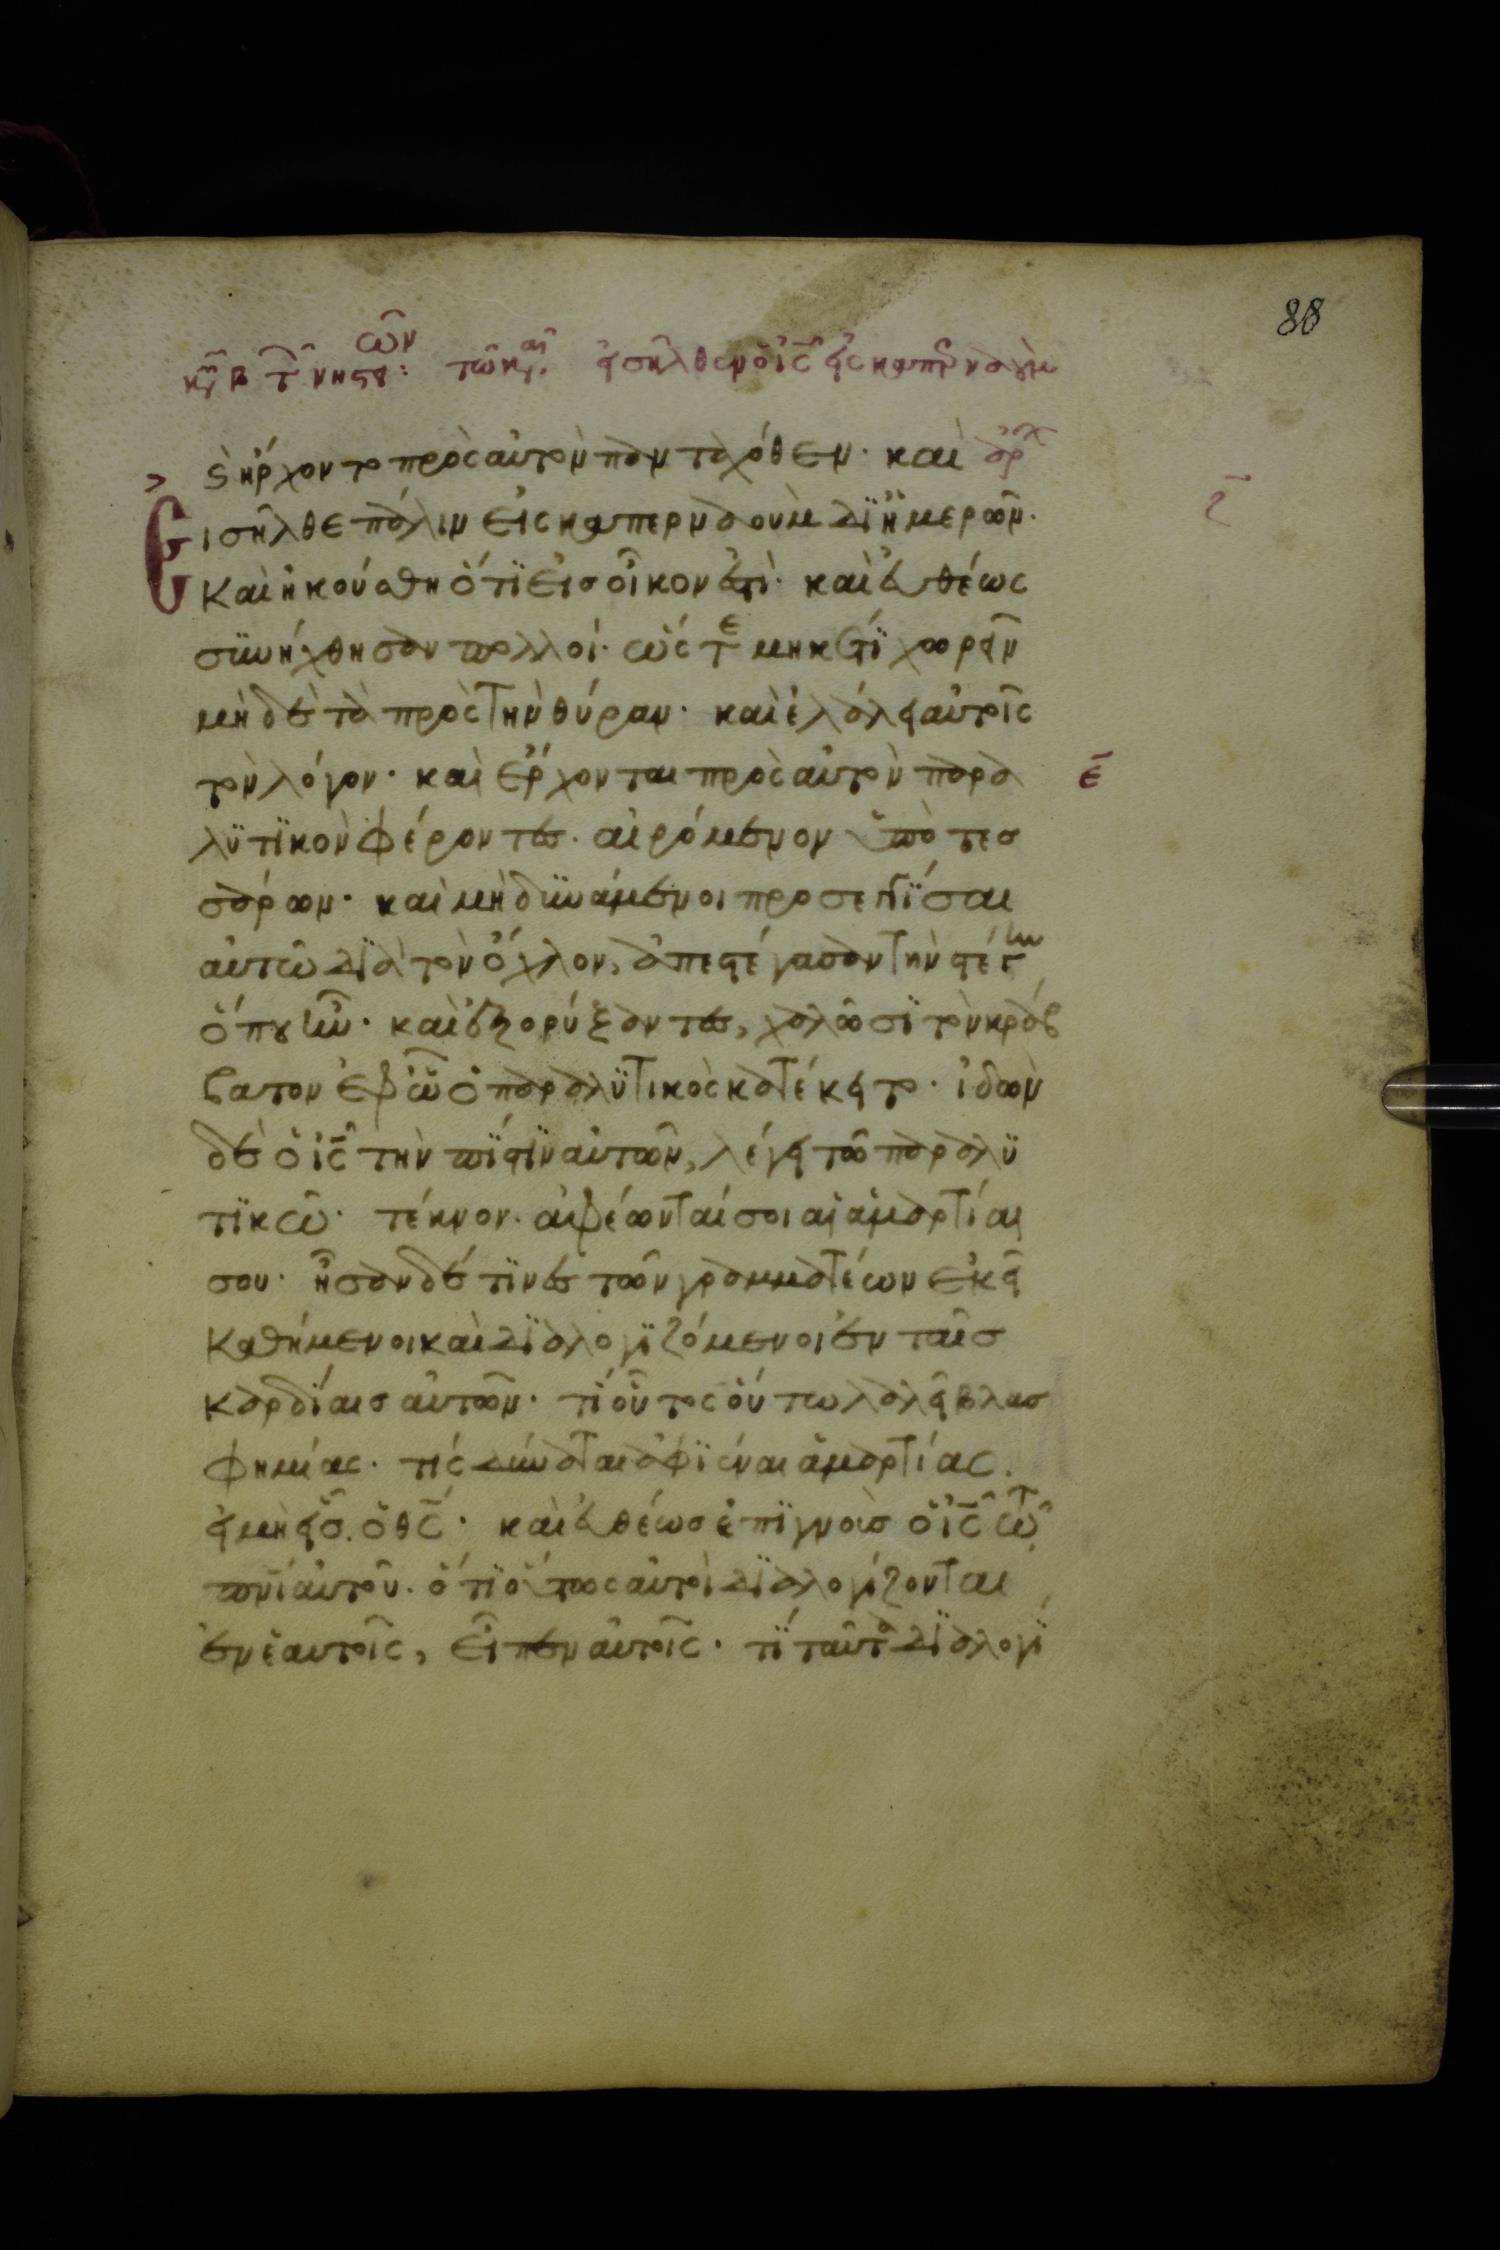 88
κυ β τῶν νηστειῶν: τῶ κ αι. εἰσῆλθεν ὁ ις εἰς καπερναοὺμ
ς ἤρχοντο πρὸς αὐτὸν πανταχόθεν· καὶ ἀρχ
Εἰσῆλθε πάλιν εἰς καπερναοὺμ δϊ ἡμερῶν·
ζ
καὶ ἠκούσθη ὅτϊ εἰς οἶκον ἐστὶ· καὶ εὐθέως
συνήχθησαν πολλοί· ὥστε μηκέτϊ χωρεῖν
μὴ δὲ τὰ πρὸς τὴν θύραν· καὶ ἐλάλει αὐτοῖς
τὸν λόγον· καὶ ἔρχονται πρὸς αὐτὸν παρα
ε
λϋτϊκὸν φέροντες. αἰρόμενον ὑπὸ τεσ
σάρων· καὶ μὴ δυνάμενοι προσεγγΐσαι
αὐτῶ δϊὰ τὸν ὄχλον, ἀπεστέγασαν τὴν στέγην
ὅπου ἦν· καὶ ἐξορύξαντες, χαλῶσϊ τὸν κράβ
βατον ἐφ ὧ ὁ παραλϋτικὸς κατέκειτο· ἰδὼν
δὲ ὁ ις τὴν πΐστϊν αὐτῶν, λέγει τῶ παραλϋ
τϊκῶ· τέκνον· ἀφέωνταί σοι αἱ ἁμαρτίαι
σου· ἦσαν δέ τϊνες τῶν γραμματέων ἐκεῖ
καθήμενοι καὶ δϊαλογϊζόμενοι ἐν ταῖσ
καρδίαισ αὐτῶν· τί οὗτος οὕτω λαλεῖ βλασ
φημίας· τίς δύναται ἀφϊέναι ἁμαρτίας.
εἰ μὴ εἷσ. ὁ θς· καὶ εὐθέωσ ἐπϊγνοὺσ ὁ ις τῶ
πνϊ αὐτοῦ· ὅτϊ οὕτως αὐτοὶ δϊαλογίζονται
ἐν ἑαυτοῖς, εἶπεν αὐτοῖς· τΐ ταῦτα δϊαλογΐ